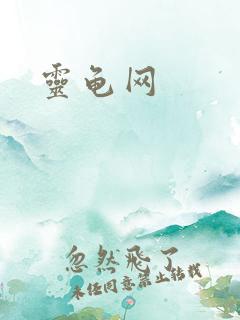 靈龟网
忽然飛了
未任同意禁止转载